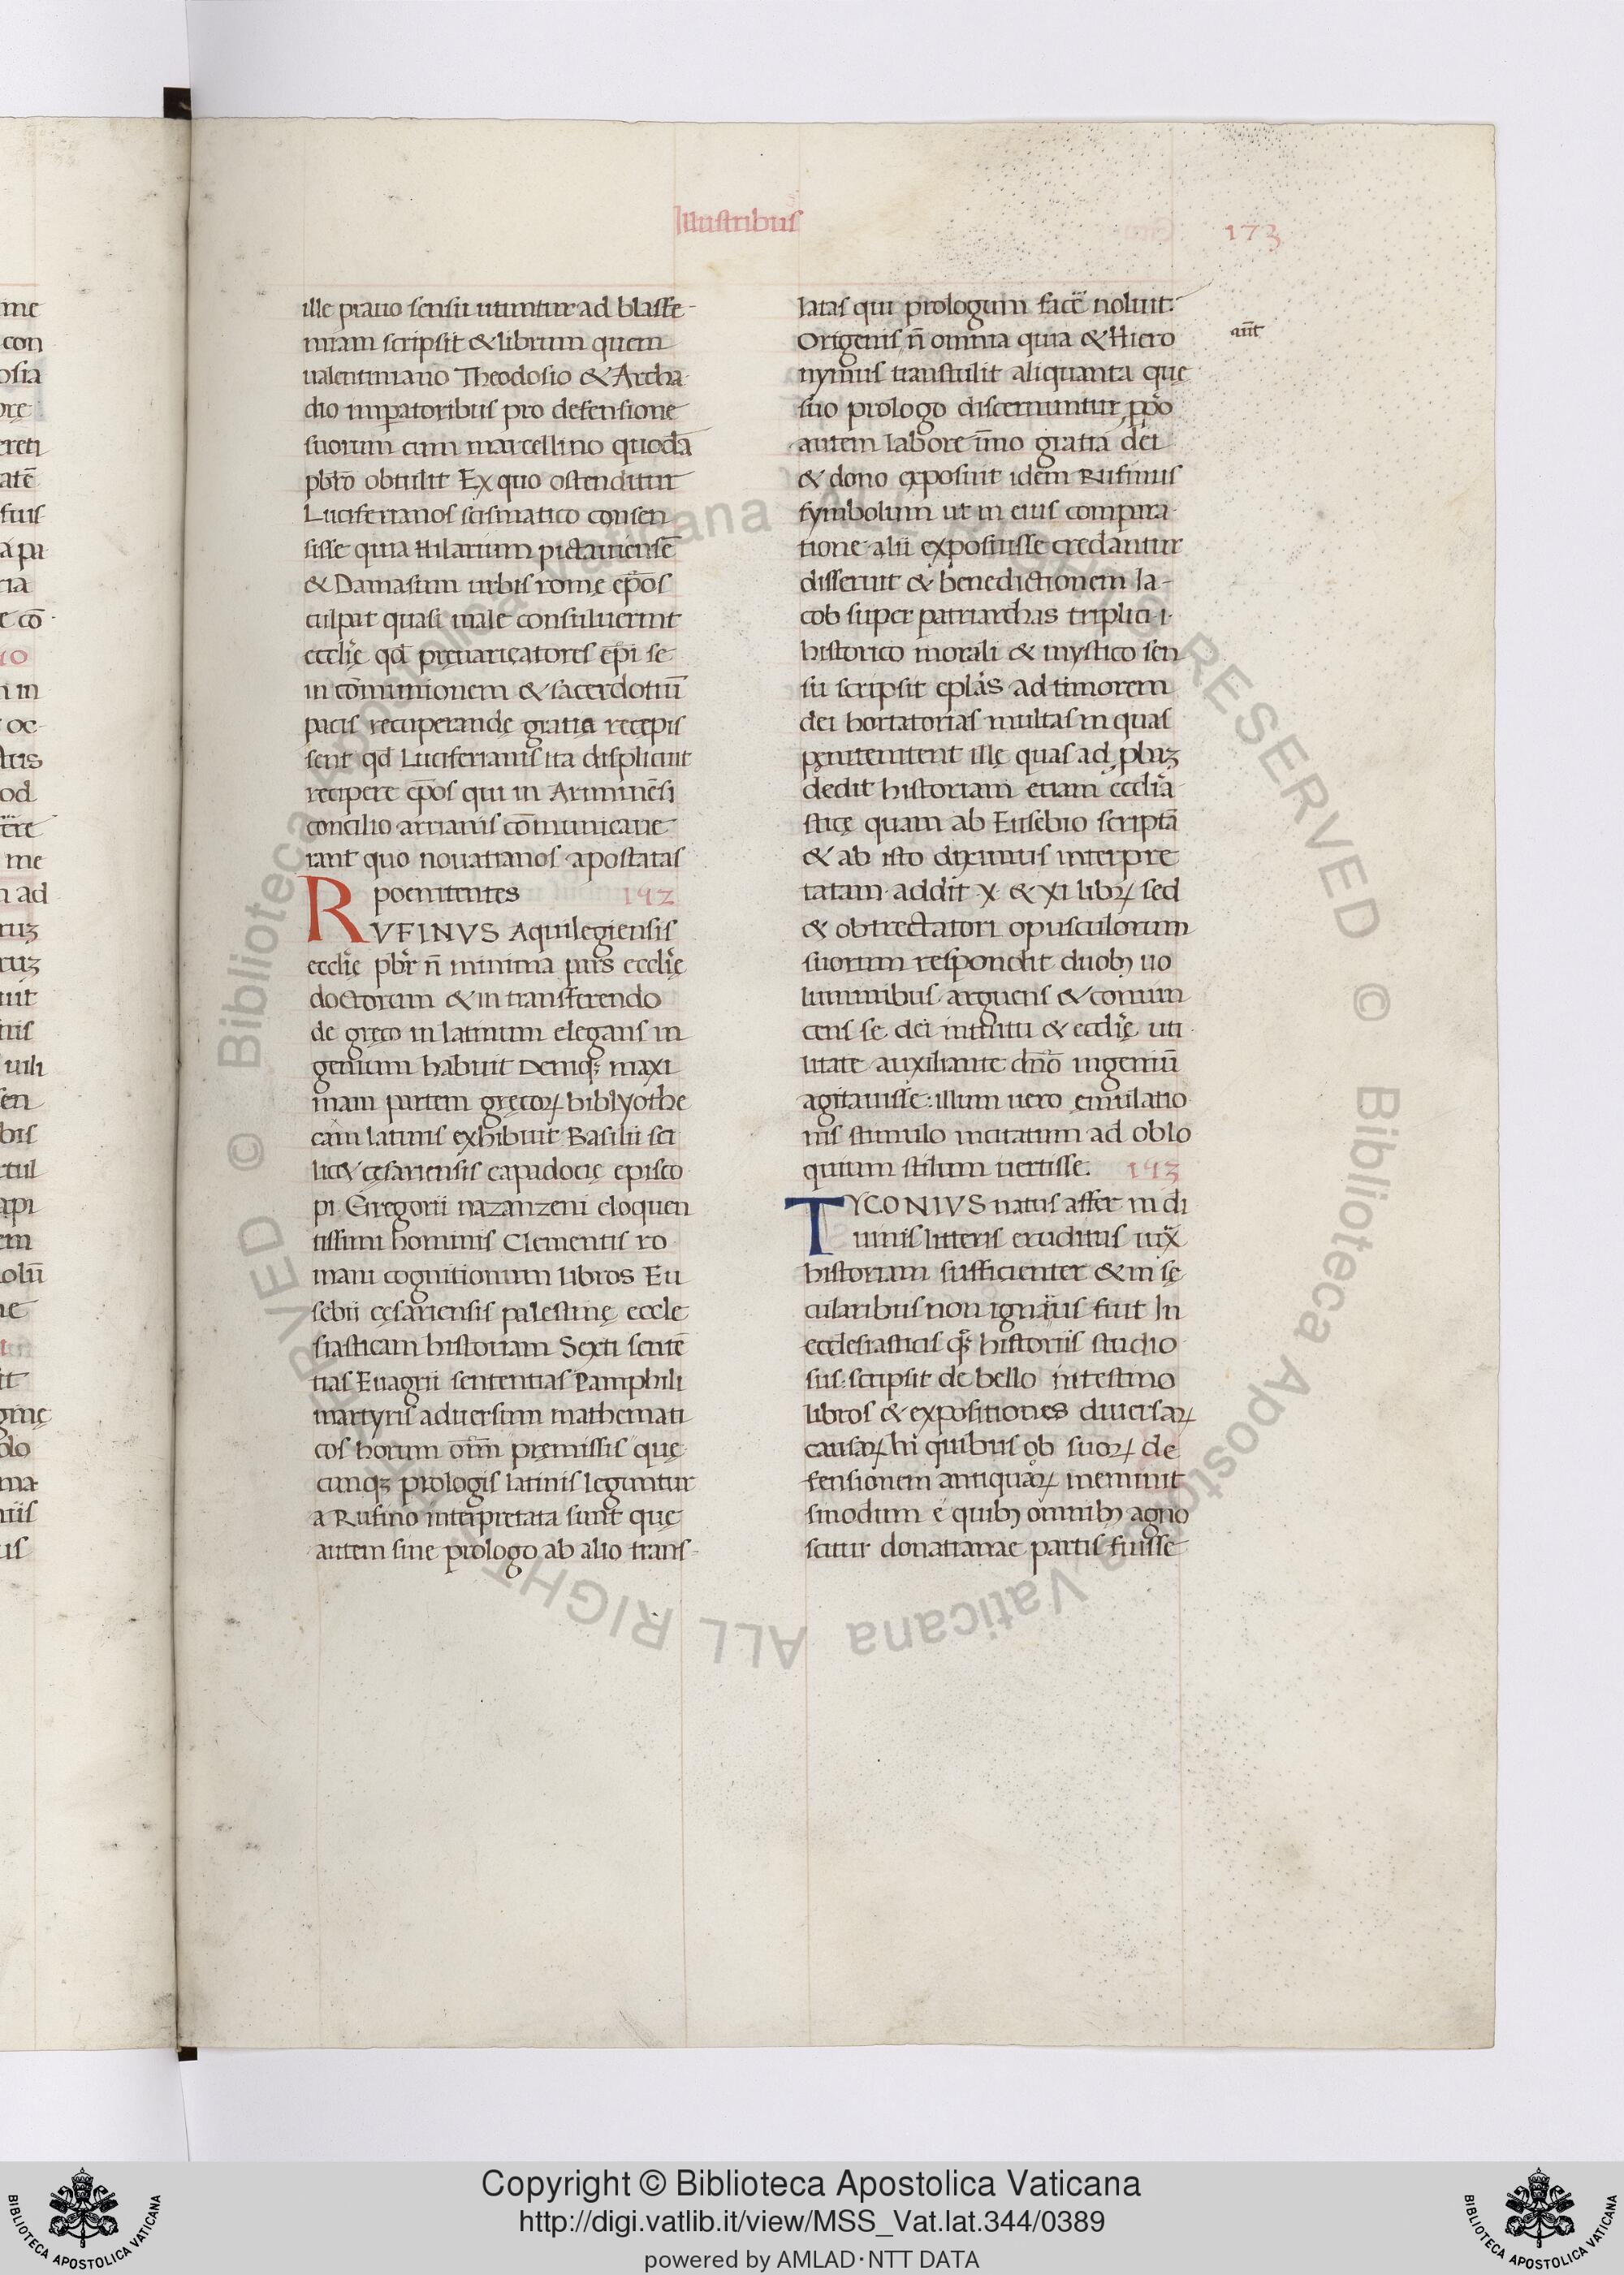 Illustribus
173
ille prauo sensu utuntur ad blasfe-
miam scripsit & librum quem
ualentiniano Theodosio & Archa
dio impatoribus pro defensione
suorum cum marcellino quodā
pbrō obtulit Ex quo ostenditur
Luciferianos scismatico consen
sisse quia Hilarium pictauiensē
& Damasum urbis romę epōs
culpat quasi male consuluerint
ecclię qd pręuaricatores epī se
in cōmunionem & sacerdotiū
pacis recuperandę gratia recepis
sent qd Luciferianis ita displicuit
recipere epōs qui in Ariminēsi
concilio arrianis cōmunicaue
rant quo nouatianos apostatas
poenitentes 192
RVFINVS Aquilegiensis
ecclię pbr n̄ minima pars ecclię
doctorum & in transferendo
de gręco in latinum elegans in
genium habuit Demq; maxi
mam partem gręcoꝝ biblyothe
cam latinis exhibuit Basilii sci
lic& cęsariensis capadocię episco
pi Gregorii nazanzeni eloquen
tissimi hominis Clementis ro
mani cognitionum libros Eu
sebii cęsariensis palestinę eccle
siasticam historiam Sexti sentē
tias Euagrii sententias Pamphili
martyris aduersum mathemati
cos horum om̄m pręmissis quę
cunq; prologis latinis leguntur
a Rufino interpretata sunt quę
autem sine prologo ab alio trans-
latas qui prologum facē noluit.
Origenis n̄ omnia quia & Hiero
aūt
nymus transtulit aliquanta que
suo prologo discernuntur ꝓpō
autem labore īmo gratia dei
& dono exposuit idem Rufinus
symbolum ut in eius compara
tione alii exposuisse credantur
disseruit & benedictionem Ia-
cob super patriarchas triplici .i.
historico morali & mystico sen
su scripsit eplās ad timorem
dei hortatorias multas in quas
pęnitenitent illę quas ad ꝓbaȝ
dedit historiam etiam ecclia
sticę quam ab Eusebio scriptā
& ab isto diximus interpre
tatam addit X & XI libꝝ sed
& obtrectatori opusculorum
suorum respondit duobȝ uo
luminibus arguens & conuin
cens se dei intuitu & ecclię uti
litate auxiliante dn̄o ingeniū
agitauisse: illum uero ęmulatio
nis stimulo incitatum ad oblo
quium stilum uertisse. 193
TYCONIVS natus affer in di
uinis litteris eruditus iux̄
historiam sufficienter & in sę
cularibus non ignarus fuit In
ecclesiasticis q; historiis studio
sus scripsit de bello intestino
libros & expositiones diuersaꝝ
causaꝝ hi quibus ob suoꝝ de
fensionem antiquaꝝ meminit
sinodum e quibȝ omnibȝ agno
scitur donatianae partis fuisse
© Biblioteca Apostolica Vaticana ALL RIGHTS RESERVED © Biblioteca Apostolica Vaticana ALL RIGHTS RESERVED
BIBLIOTECA APOSTOLICA VATICANA
Copyright © Biblioteca Apostolica Vaticana
http://digi.vatlib.it/view/MSS_Vat.lat.344/0389
powered by AMLAD·NTT DATA
BIBLIOTECA APOSTOLICA VATICANA